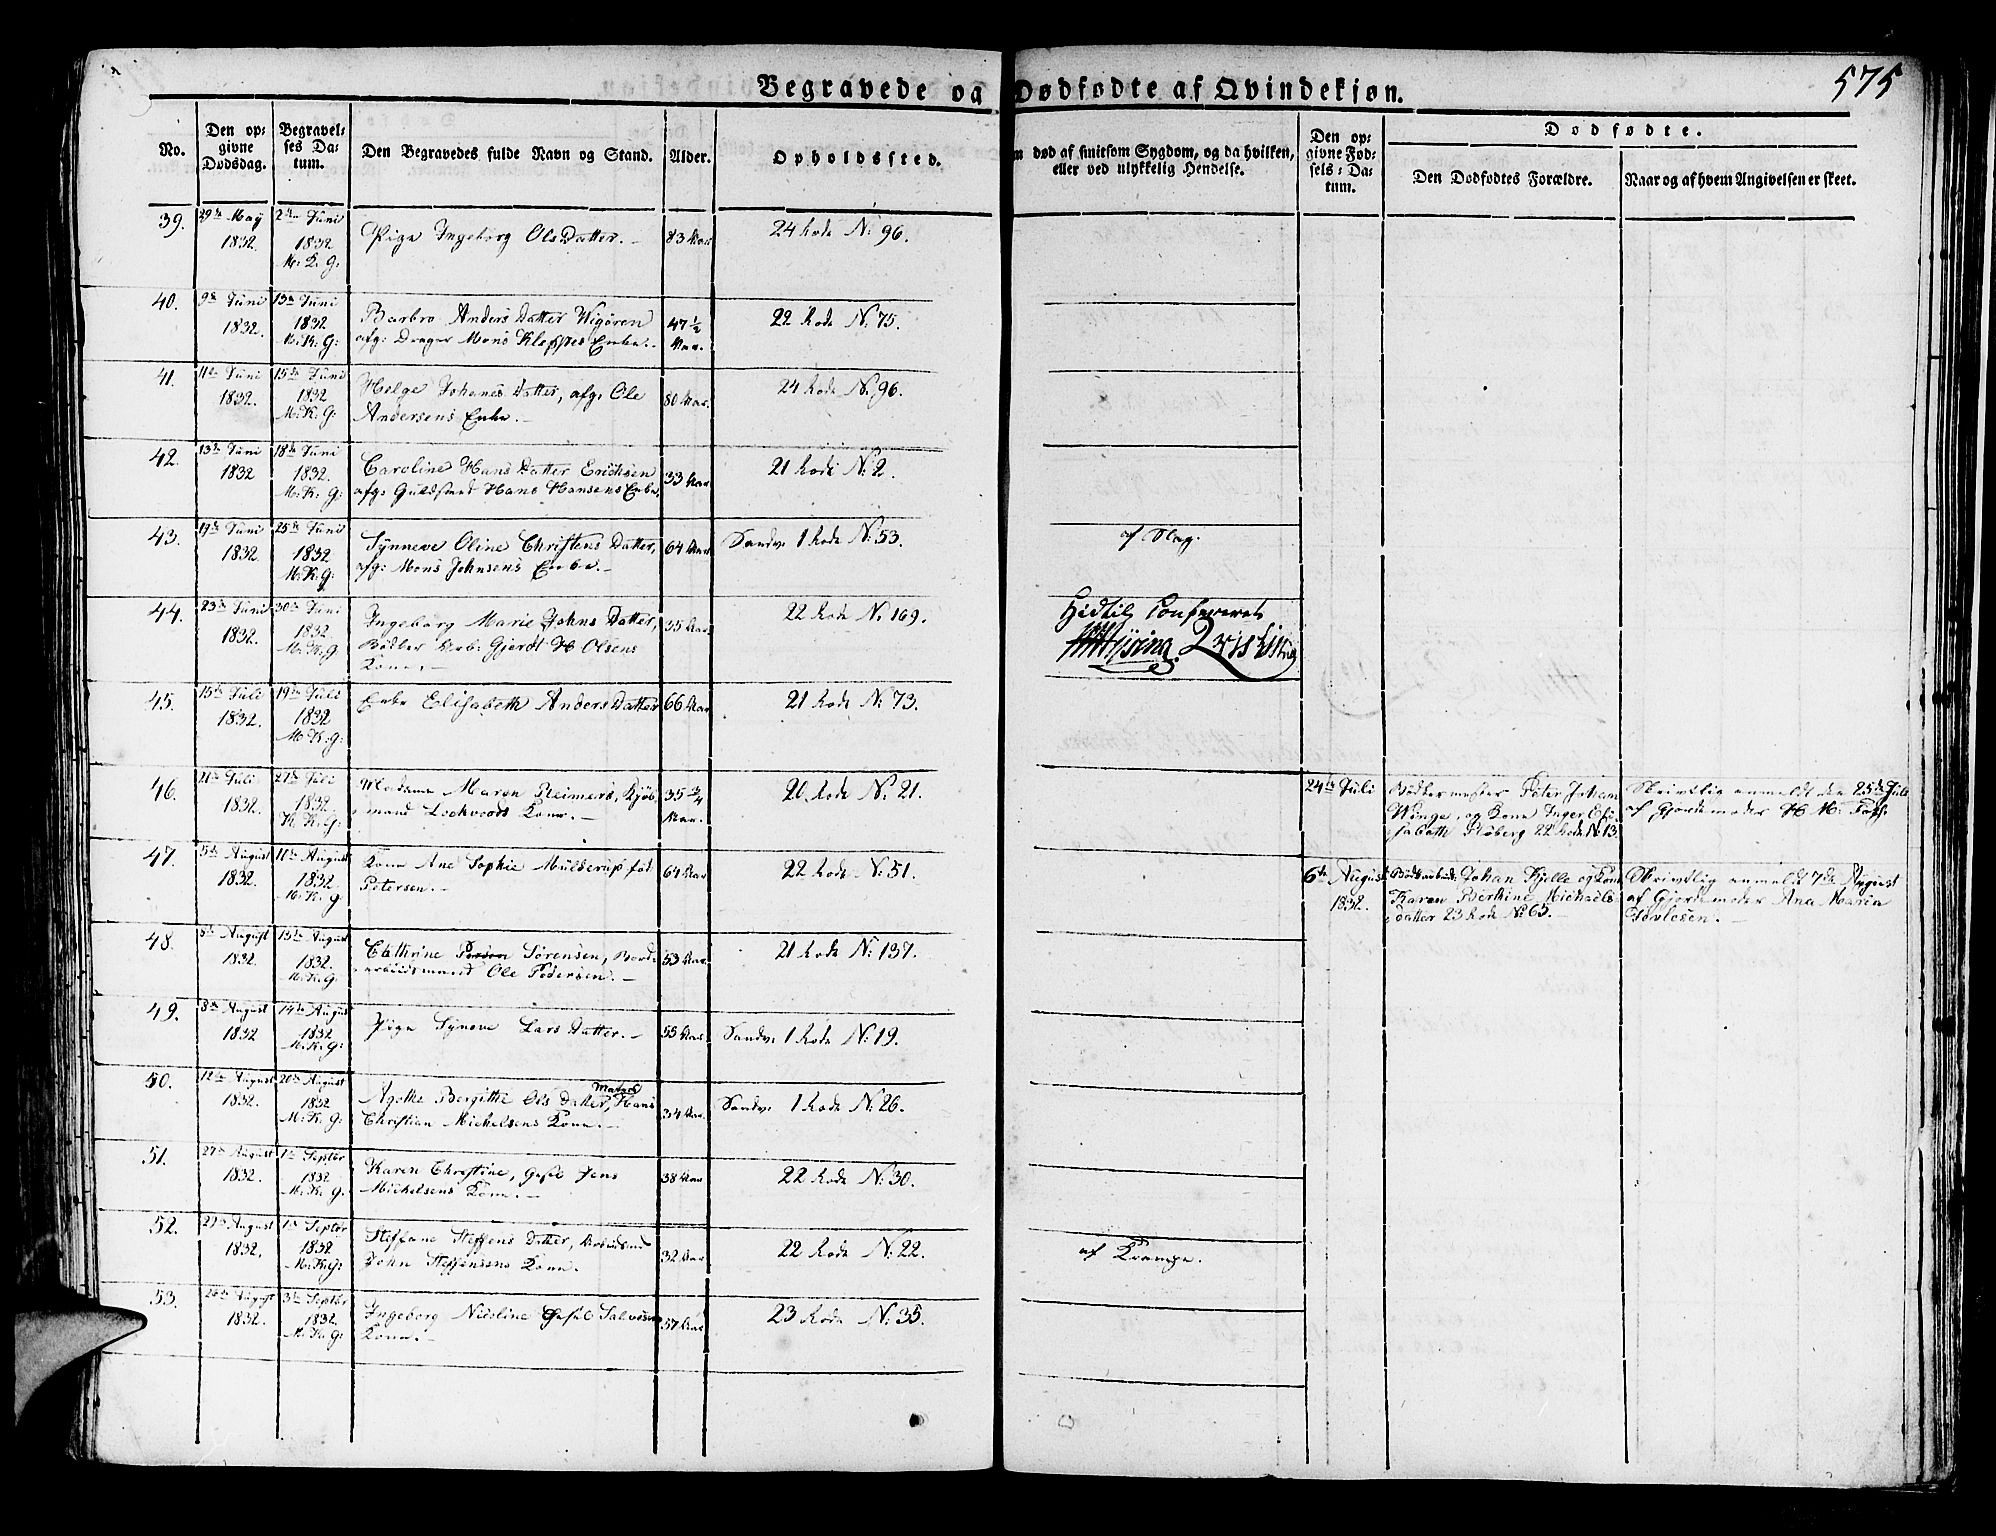 Begravede og Dødfødte af Qvindekjøn.
575
No.
Den op-
givne
Dødsdag.
Begravel-
ses Da-
tum.
Den Begravedes fulde Navn og Stand.
Alder.
Opholdssted.
m død af smitsom Sygdom, og da hvilken,
eller ved ulykkelig Hendelse.
Den op-
givne Fød-
sels-Da-
tum.
Dødfødte.
Den Dødfødtes Forældre.
Naar og af hvem Angivelsen er skeet.
39. 29de May 2den Juni
1832. 1832 Pige Ingeborg Ols Datter.- 83 Aar 24 Rode N: 96.
40. 9de Juni 13de Juni
1832. 1832 Barbro Anders Datter Wigøren 47 1/2 22 Rode N: 75.
M: K: G: afg: Drager Mons Kleppes Enke.- Aar.
41. 11te Juni 15de Juni
1832. 1832 Helge Johanes Datter, afg: Ole 80 Aar. 24 Rode N: 96.
M: K: G: Andersens Enke.-
42. 13de Juni 18de Juni
1832 1832. Caroline Hans Datter Erichsen 33 Aar 21 Rode N: 2.
M: K: G: afg: Guldsmed Hans Hansens Enke,
43. 19de Juni 25de Juni
1832 1832 Synneve Oline Christens Datter, 64 Aar Sandv: 1 Rode N: 53.
M: K: G: afg: Mons Johnsens Enke.-
44. 23de Juni 30de Juni
1832. 1832 Ingeborg Marie Johns Datter, 35 Aar. 22 Rode N: 169.
M: K: G Bødker Gjerdt H Olsens
Kone.-
Hidtil Confereret
45. 15de Juli 19de Juli
1832. 1832 Enke Elisabeth Anders Datter 66 Aar 21 Rode N: 73.
M: K: G:
46. 21de Juli 27de Juli
1832. 1832. Madame Maren Reimers, Kjøb- 35 3/4 20 Rode N: 21.
K: G: mand Lockvoods Kone.- Aar.
24de Juli Bødkermester Peter Johan Skrivtlig anmeldt den 25de Juli
Winge, og Kone Inger Eli- af Gjordemoder H. M:
sabeth 22 Rode N: 13
47. 5te August 11te August
1832. 1832. Kone Ane Sophie Mülderup fød 64 Aar 22 Rode N: 51.
M: K: G. Petersen.-
6te August Johan Kjelle og Kone Skrivtlig anmeldt 7de August
1832. Karen Berthine Michaels af Gjordemoder Ana Maria
Datter 23 Rode N: 65.-
48. 8de August 13de August
1832. 1832. Cathrine Sørensen, 53 Aar. 21 Rode N: 137.
M: K: G: arbeidsmand Ole Pedersen.-
49. 8de August 14de August
1832 1832 Pige Syneve Lars Datter.- 55 Aar. Sandv: 1 Rode N: 19.
M: K: G:
50. 12te August 20de August
1832. 1832 Agethe Bergitthe Ols Datter, Matros Hans 34 Aar. Sandv: 1 Rode N: 26.
M: K: G: Christian Michelsens Kone.-
51. 27de August 1te Septbr
1832. 1832 Karen Christine, Gesel Jens 38 Aar 22 Rode N: 30.
M: K: G. Michelsens Kone.-
52. 27de August 1te Septbr
1832. 1832 Steffane Steffens Datter, Arbeidsmd 32 Aar 22 Rode N: 22.
M: K: G: John Steffensens Kone.
af Krampe.
53. 26de August 3de Septbr
1832. 1832 Ingeborg Nicoline Gesel Salvesens 57 Aar 23 Rode N: 35.
M: K: G: Kone.-